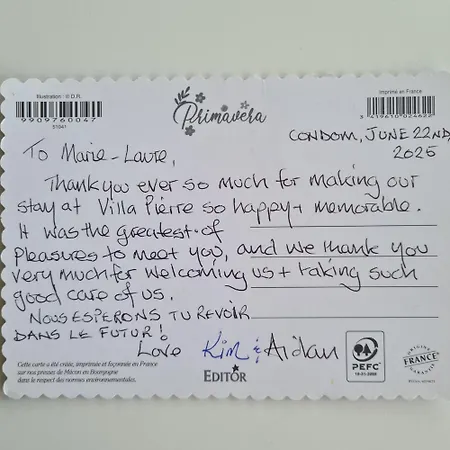 Illustration : © D.R.
Imprimé en France
9909760047
51041
3419610024622
Primavera
CONDOM, JUNE 22ND,
2025
To Marie-Laure,
Thank you ever so much for making our
stay at Villa Pierre so happy + memorable.
It was the greatest of
pleasures to meet you, and we thank you
very much for welcoming us + taking such
good care of us.
NOUS ESPERONS TU REVOIR
DANS LE FUTUR!
Love Kim & Aidan
Cette carte a été créée, imprimée et façonnée en France
sur nos presses de Mâcon en Bourgogne
dans le respect des normes environnementales.
EDITOR
PEFC
10-31-3088
ORIGINE
FRANCE
GARANTIE